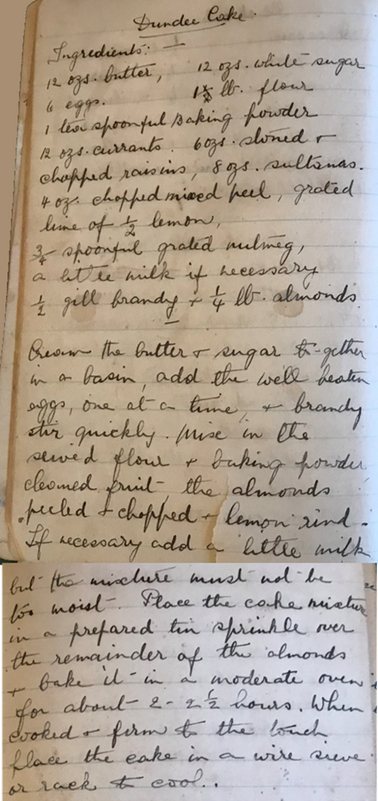 Dundee Cake.
Ingredients: —
12 ozs. butter, 12 ozs. white sugar
6 eggs. lb. flour
1 tea spoonful Baking powder
12 ozs. currants. 6 ozs. stoned +
chopped raisins, 8 ozs. sultanas.
4 oz. chopped mixed peel, grated
of ½ lemon,
¾ spoonful grated nutmeg,
a little milk if necessary
½ gill brandy + ¼ lb. almonds.
Cream the butter + sugar to-gether
in a basin, add the well beaten
eggs, one at a time, + brandy
stir quickly. Mix in the
sieved flour + baking powder
cleaned fruit, the almonds
peeled + chopped + lemon rind.
If necessary add a little milk
but the mixture must not be
too moist. Place the cake mixture
in a prepared tin sprinkle over
the remainder of the almonds
+ bake it in a moderate oven
for about 2 - 2½ hours. When
cooked + firm to the touch
place the cake in a wire sieve
or rack to cool..